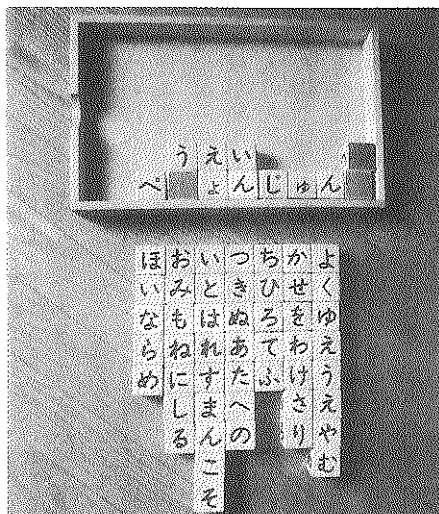 うえい
ぺ ょんじゅん
よくゆえうえやむ
かせをわけさり
ちひろてふ
つきぬあたへの
いとはれすまんこそ
おみもねにしる
ほいならめ